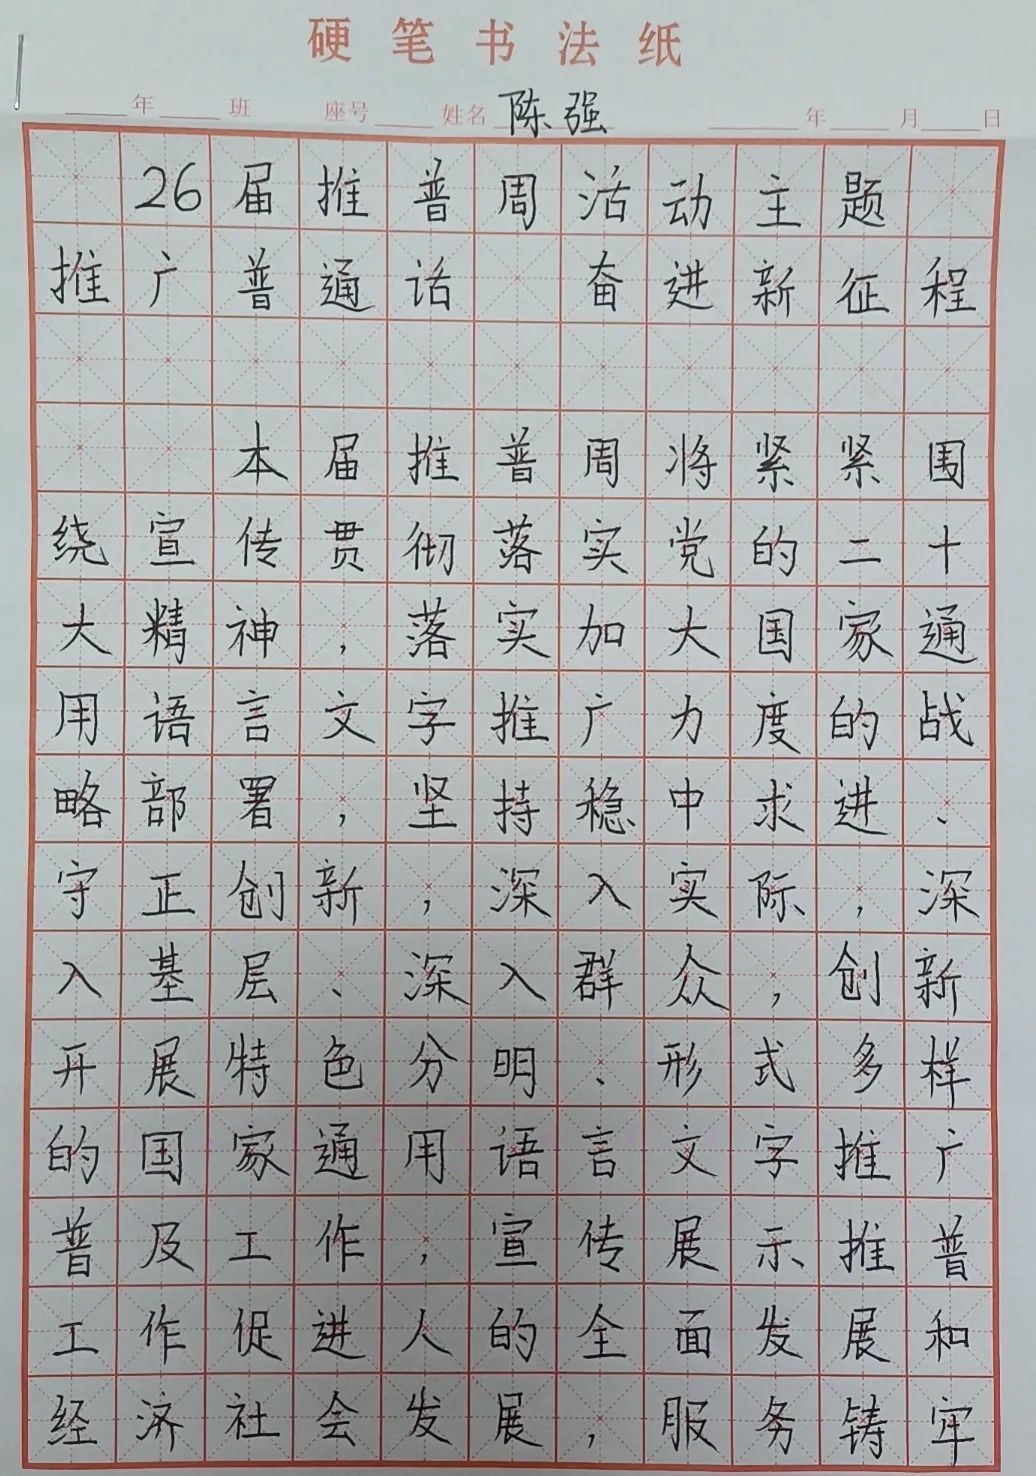 硬笔书法纸
年 班 座号 姓名 陈强 年 月 日
26届推普周活动主题
推广普通话 奋进新征程
本届推普周将紧紧围
绕宣传贯彻落实党的二十
大精神，落实加大国家通
用语言文字推广力度的战
略部署，坚持稳中求进、
守正创新，深入实际，深
入基层、深入群众，创新
开展特色分明、形式多样
的国家通用语言文字推广
普及工作，宣传展示推普
工作促进人的全面发展和
经济社会发展，服务铸牢